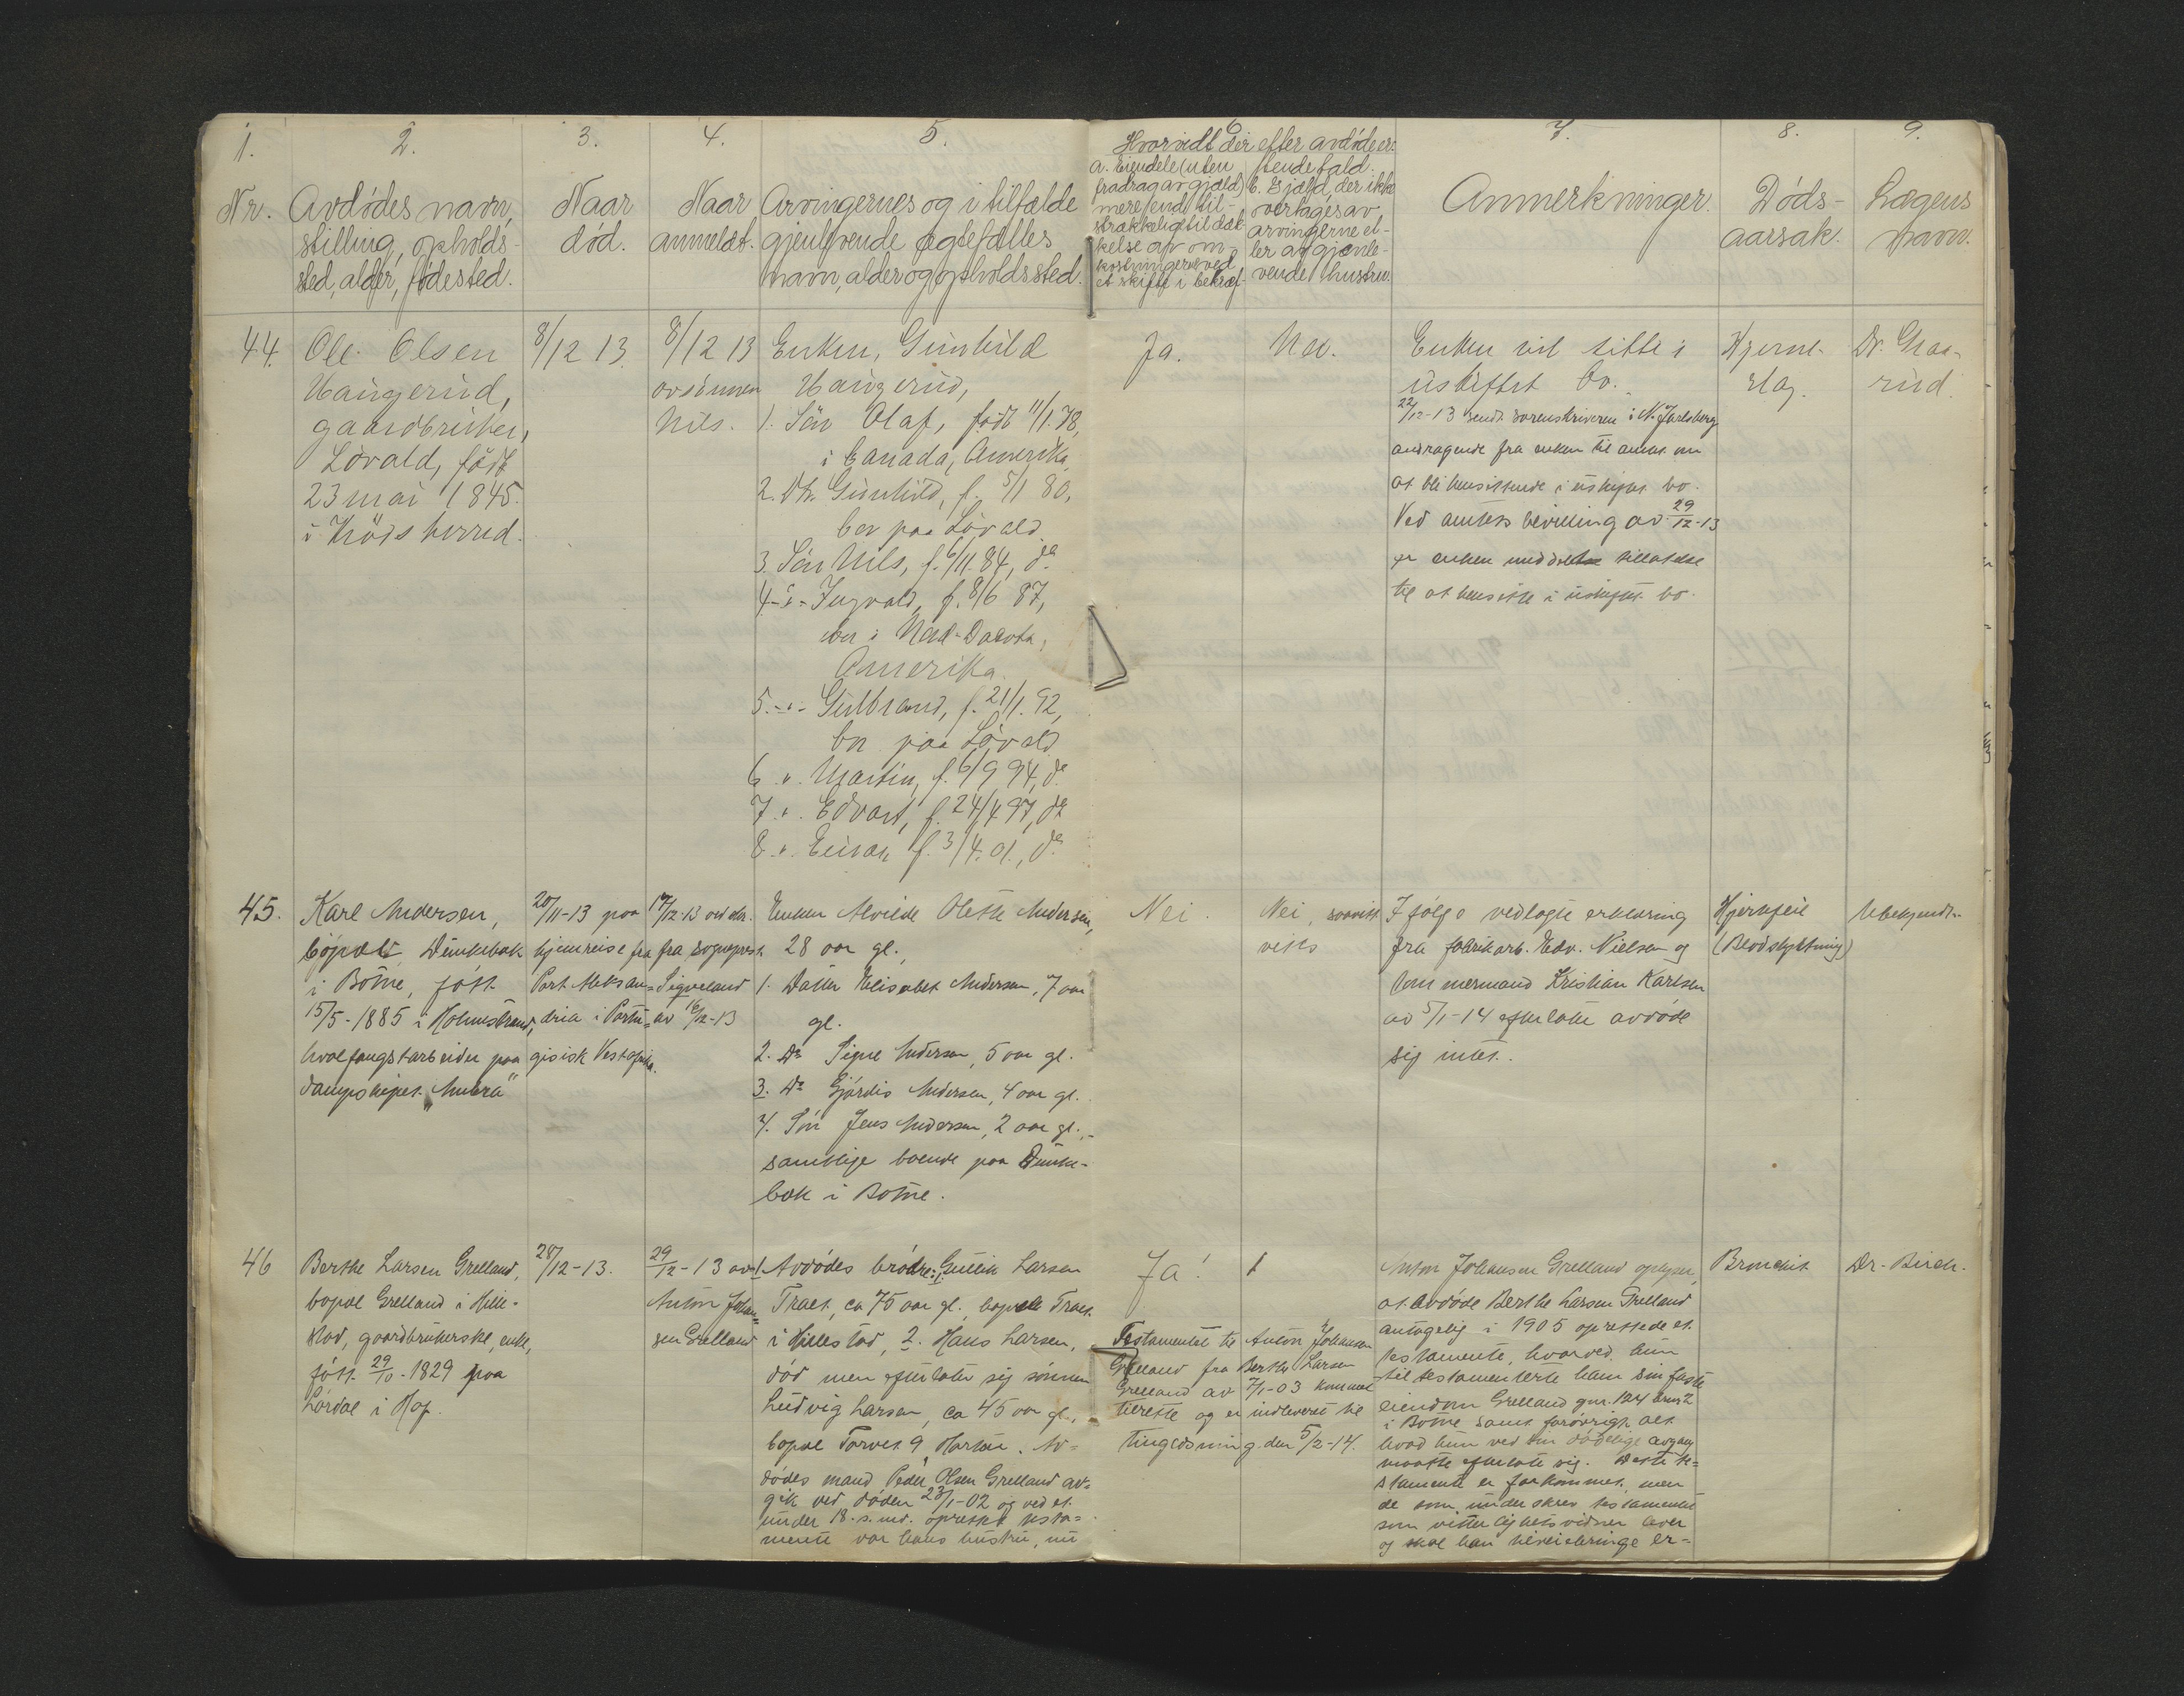 1.
2.
3.
4.
5.
6.
7.
8.
9.
Nr.
Avdødes navn,
stilling, opholds-
sted, alder, fødested.
Naar
død.
Naar
anmeldt.
Arvingernes og i tilfælde
gjenlevende ægtefælles
navn, alder og opholdssted.
Hvorvidt der efter avdøde er:
a. Eiendele (uten
fradrag av gjæld)
mere end til-
strækkelig til dæk-
kelse av om-
kostningerne ved
et skifte i bekræf-
tende fald.
b. Gjæld, der ikke
overtages av
arvingerne el-
ler av gjenle-
vende hustru.
Anmerkninger.
Døds-
aarsak.
Lægens
navn.
44.
Ole Olsen
Haugerud,
gaardbruker,
Løvald, født
23 mai 1845
i Kröds herred.
8/12 13.
8/12 13
av sönnen
Nils.
Enken, Gunhild
Haugerud,
1. Sön Olaf, född 11/1.78,
i Canada, Amerika
2. Dtr. Gunhild, f. 5/1 80,
bor paa Lövald
3. Sön Nils, f. 6/11.84, do
4 -"- Ingvald, f. 8/6 87,
bor i Nord-Dacota,
Amerika.
5. -"- Gulbrand, f. 21/1.92,
bor paa Lövald
6 " Martin, f. 6/9 94, do
7 " Edvart, f. 24/4 97, do
8 " Einar f. 3/4.01., do
Ja.
Nei.
Enken vil sitte i
uskiftet bo.
22/12-13 sendt sorenskriveren i N. Jarlsberg
andragende fra enken til amtet om
at bli hensittende i uskiftet bo.
Ved amtets bevilling av 29/12-13
er enken meddelt tillatelse
til at hensitte i uskiftet bo.
Hjerne-
slag.
Dr. Graa-
rud.
45.
Karl Andersen,
bopæl Dunkebæk
i Botne, født
15/5-1885 i Holmestrand,
hvalfangstarbeider paa
dampskipet "Ambra"
20/11-13 paa
hjemreise fra
Port Aleksan=
dria i Portu=
gisisk Vestafrika.
17/12-13 ved skr.
fra sogneprest
Sigveland
av 16/12-13
Enken Alvilde Olette Andersen,
28 aar gl.,
1. Datter Elisabet Andersen, 7 aar
gl.
2. Do Signe Andersen, 5 aar gl.
3. Do Hjørdis Andersen, 4 aar gl.
4. Søn Jens Andersen, 2 aar gl.,-
samtlige boende paa Dunke-
bæk i Botne.
Nei.
Nei, saavidt
vites
Ifølge vedlagte erklæring
fra fabrikarb. Edv. Nielsen og
tømmermand Kristian Karlsen
av 5/1-14 efterlatte avdøde
sig intet.
Hjertefeil
(Blodstyrtning)
Ubekjendt.
46
Berthe Larsen Grelland,
bopæl Grelland i Hille-
stad, gaardbrukerske, enke,
født 29/10-1829 paa
Lørdal i Hof.
28/12-13.
29/12-13 av
Anton Johan=
sen Grelland
Avdødes brødre: 1. Gullik Larsen
Traet, ca 75 aar gl. bopæl Traet
i Hillestad, 2. Hans Larsen,
død men efterlater sig sønnen
Ludvig Larsen, ca 45 aar gl.,
bopæl Torvet 9, Horten. Av=
dødes mand Peder Olsen Grelland av=
gik ved døden 23/1-02 og ved et
under 18. s. md. oprettet testa=
mente var hans hustru, nu
Ja!
Testamentet til Anton Johansen
Grelland fra Berthe Larsen
Grelland av 7/1-03 kommet
tilrette og er indleveret til
tinglæsning den 5/2-14.
Anton Johansen Grelland oplyser,
at avdøde Berthe Larsen Grelland
antagelig i 1905 oprettede et
testamente, hvorved hun
til testamenterte ham sin faste
eiendom Grelland gnr. 124 brnr 2
i Botne samt forøvrigt alt
hvad hun ved sin dødelige avgang
maatte efterlate sig. Dette te=
stamente er forkommet, men
de som underskrev testamentet
som vitterlighetsvidner lever
og skal han tilveiebringe er=
Bronchit
Dr. Birch.